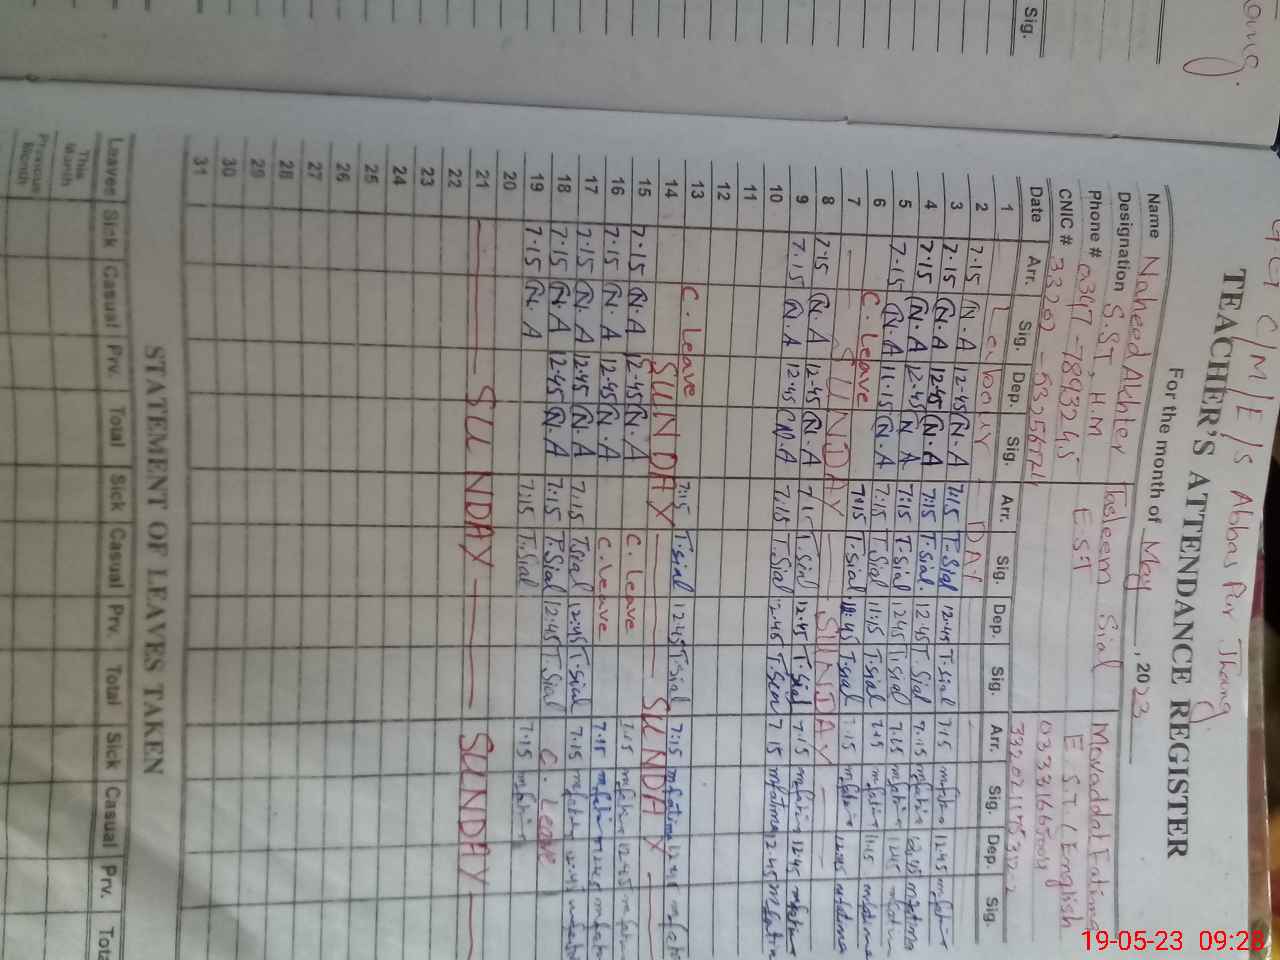 Sig.
G G C/M/E/S Abbas Pur Jhang
TEACHER'S ATTENDANCE REGISTER
For the month of May, 2023
Name Naheed Akhter Tasleem Sial Mavaddat Fatima
Designation S.ST, H.M E.S.T E.S.T (English
Phone # 0347-7893245
CNIC #
Date Arr. Sig. Dep. Sig. Arr. Sig. Dep. Sig. Arr. Sig. Dep. Sig.
1 Labour DAY
2 7.15 N.A 12-45 N.A 7:15 T.Sial 12.45 T.Sial 7.15 mfatima 12.45 mfatima
3 7.15 N.A 12.45 N.A 7:15 T.Sial 12.45 T.Sial 7.15 mfatima 12.45 mfatima
4 7.15 N.A 12.45 N.A 7:15 T.Sial 12.45 T.Sial 7.15 mfatima 12.45 mfatima
5 7.15 N.A 11.15 N.A 7:15 T.Sial 11:15 T.Sial 7.15 mfatima 11.15 mfatima
6 C.Leave 7:15 T.Sial 12:45 T.Sial 7.15 mfatima 12.45 mfatima
7 SUNDAY SUNDAY
8 7.15 N.A 12.45 N.A T.Sial 12.45 T.Sial 7.15 mfatima 12.45 mfatima
9 7.15 N.A 12.45 N.A 7.15 T.Sial 12.45 T.Sial 7.15 mfatima 12.45 mfatima
10
11
12
13 C.Leave 7:15 T.Sial 12.45 T.Sial 7:15 mfatima 12.45 mfatima
14 SUNDAY SUNDAY
15 7.15 N.A 12.45 N.A C.Leave 7.15 mfatima 12.45 mfatima
16 7.15 N.A 12.45 N.A C.Leave 7.15 mfatima 12.45 mfatima
17 7.15 N.A 12.45 N.A 7.15 T.Sial 12.45 T.Sial 7.15 mfatima 12.45 mfatima
18 7.15 N.A 12.45 N.A 7:15 T.Sial 12:45 T.Sial C.Leave
19 7.15 N.A 7:15 T.Sial 7.15 mfatima
20
21 SUNDAY SUNDAY
22
23
24
25
26
27
28
29
30
31
STATEMENT OF LEAVES TAKEN
Leaves Sick Casual Prv. Total Sick Casual Prv. Total Sick Casual Prv. Total
This Month
Previous Month
19-05-23 09:28